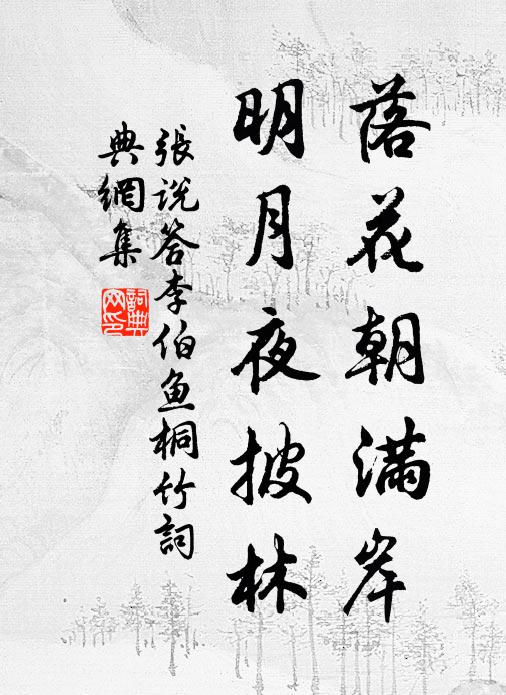 落花朝滿岸
明月夜披林
張说答李伯鱼桐竹詞
典網集
詞典
网印